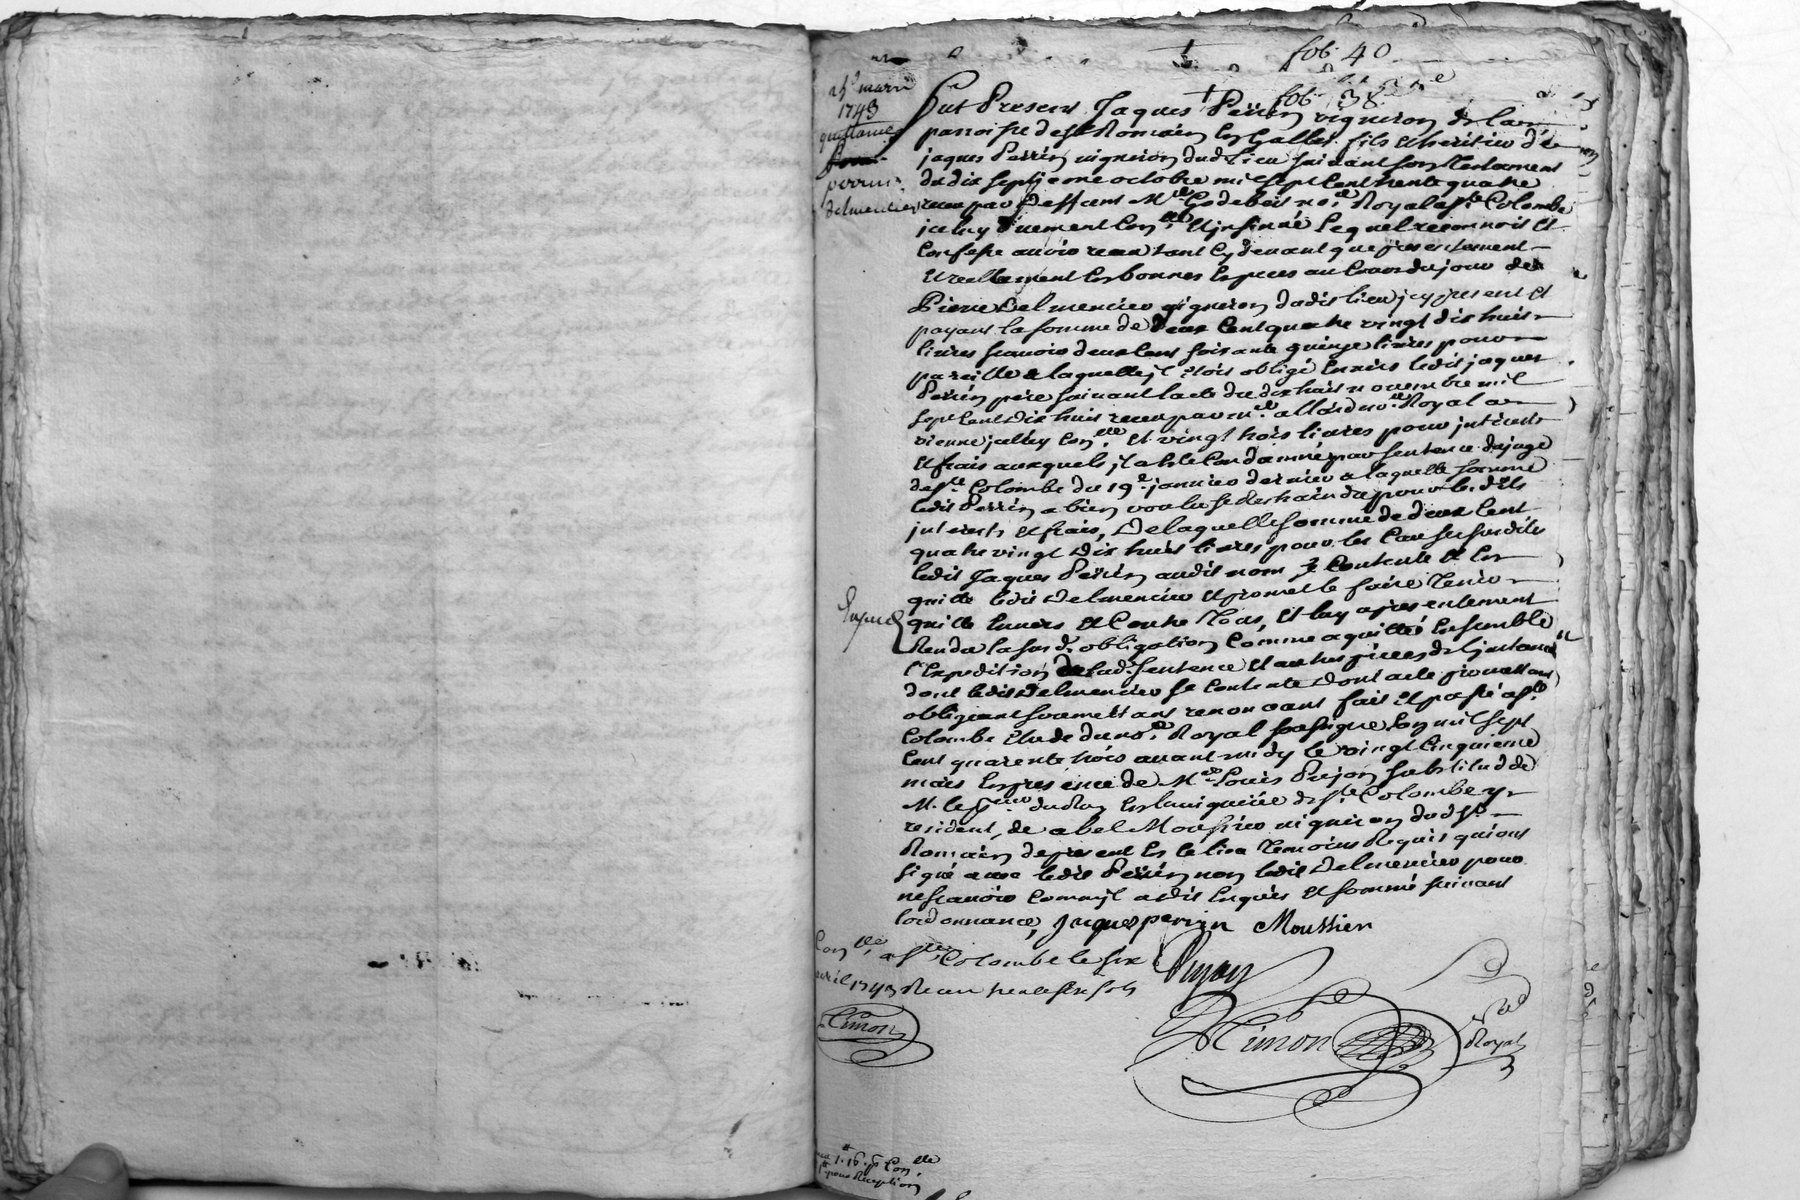 fol. 40
fol. 38
25e mars
1743
quittance
perrin
delmercier
Fut Present Jaques Perrin vigneron de la
parroisse de St Romain en Galles fils et heritier de
jaques Perrin vigneron dud. lieu suivant son Testament
du dix septieme octobre mil sept cent trente quatre
receu par deffunt Me Godebois no.re Royal a Ste Colombe
iceluy duement Con.llé et insinué Lequel reconnoit et
Confesse avoir receu tant cy devant que presentement
et reellement en bonnes Especes au Cours du jour de
Pierre Delmercier vigneron dudit lieu icy present et
payant la somme de deux Cent quatre vingt dix huit
livres scavoir deux Cent soixante quinze livres pour
pareille a laquelle il etoit obligé Envers ledit jaques
Perrin pere suivant lacte du dix huit novembre mil
sept Cent dix huit receu par me allard no.re Royal a
vienne icelluy Con.llé et vingt trois livres pour interests
et frais auxquels il a eté Condamné par sentence du juge
de Ste Colombe du 19e janvier dernier a laquelle somme
ledit Perrin a bien voulu se restraindre pour lesdits
interests et frais, De laquelle somme de deux Cent
quatre vingt dix huit livres pour les Causes susdites
ledit Jaques Perrin audit nom se Contente et En
quitte ledit Delmercier et promet le faire Tenir
quitte Envers et Contre Tous, et luy a presentement
Rendu la susd. obligation Comme aquittée Ensemble
l'Expedition de lad. sentence et autres pieces de l'instance
dont ledit Delmercier se Contente dont acte promettant
obligeant soumettant renoncant fait et passé a Ste
Colombe Etude du no.re Royal soussigné Lan mil sept
Cent quarente trois avant midy le vingt Cinquieme
mars En presence de Me Louis Pujon substitud de
M. le Pr.eur du Roy En la viguerie de Ste Colombe y
resident, de abel Moussier vigneron dud. St
Romain de present En ce lieu Temoins Requis qui ont
signé avec ledit Perrin non ledit Delmercier pour
ne scavoir Comme il a dit Enquis et sommé suivant
lordonnance, Jaques perrin Moussier
Con.llé a Ste Colombe le six
avril 1743 Receu treize sols
Pujon
Simon
Simon
no.re
Royal